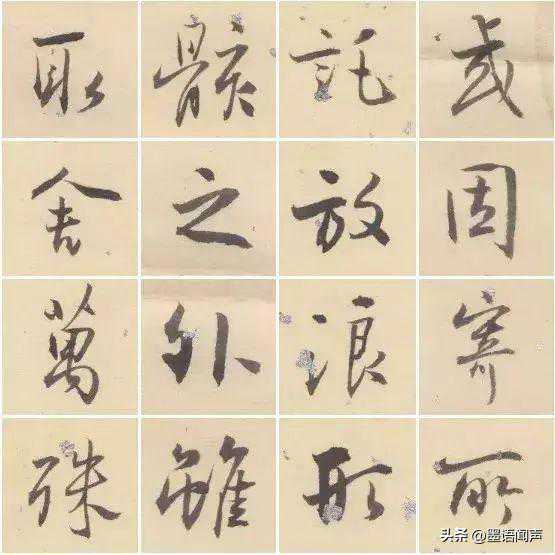 或因寄所
託放浪形
骸之外雖
取舍萬殊
头条 @墨语闻声